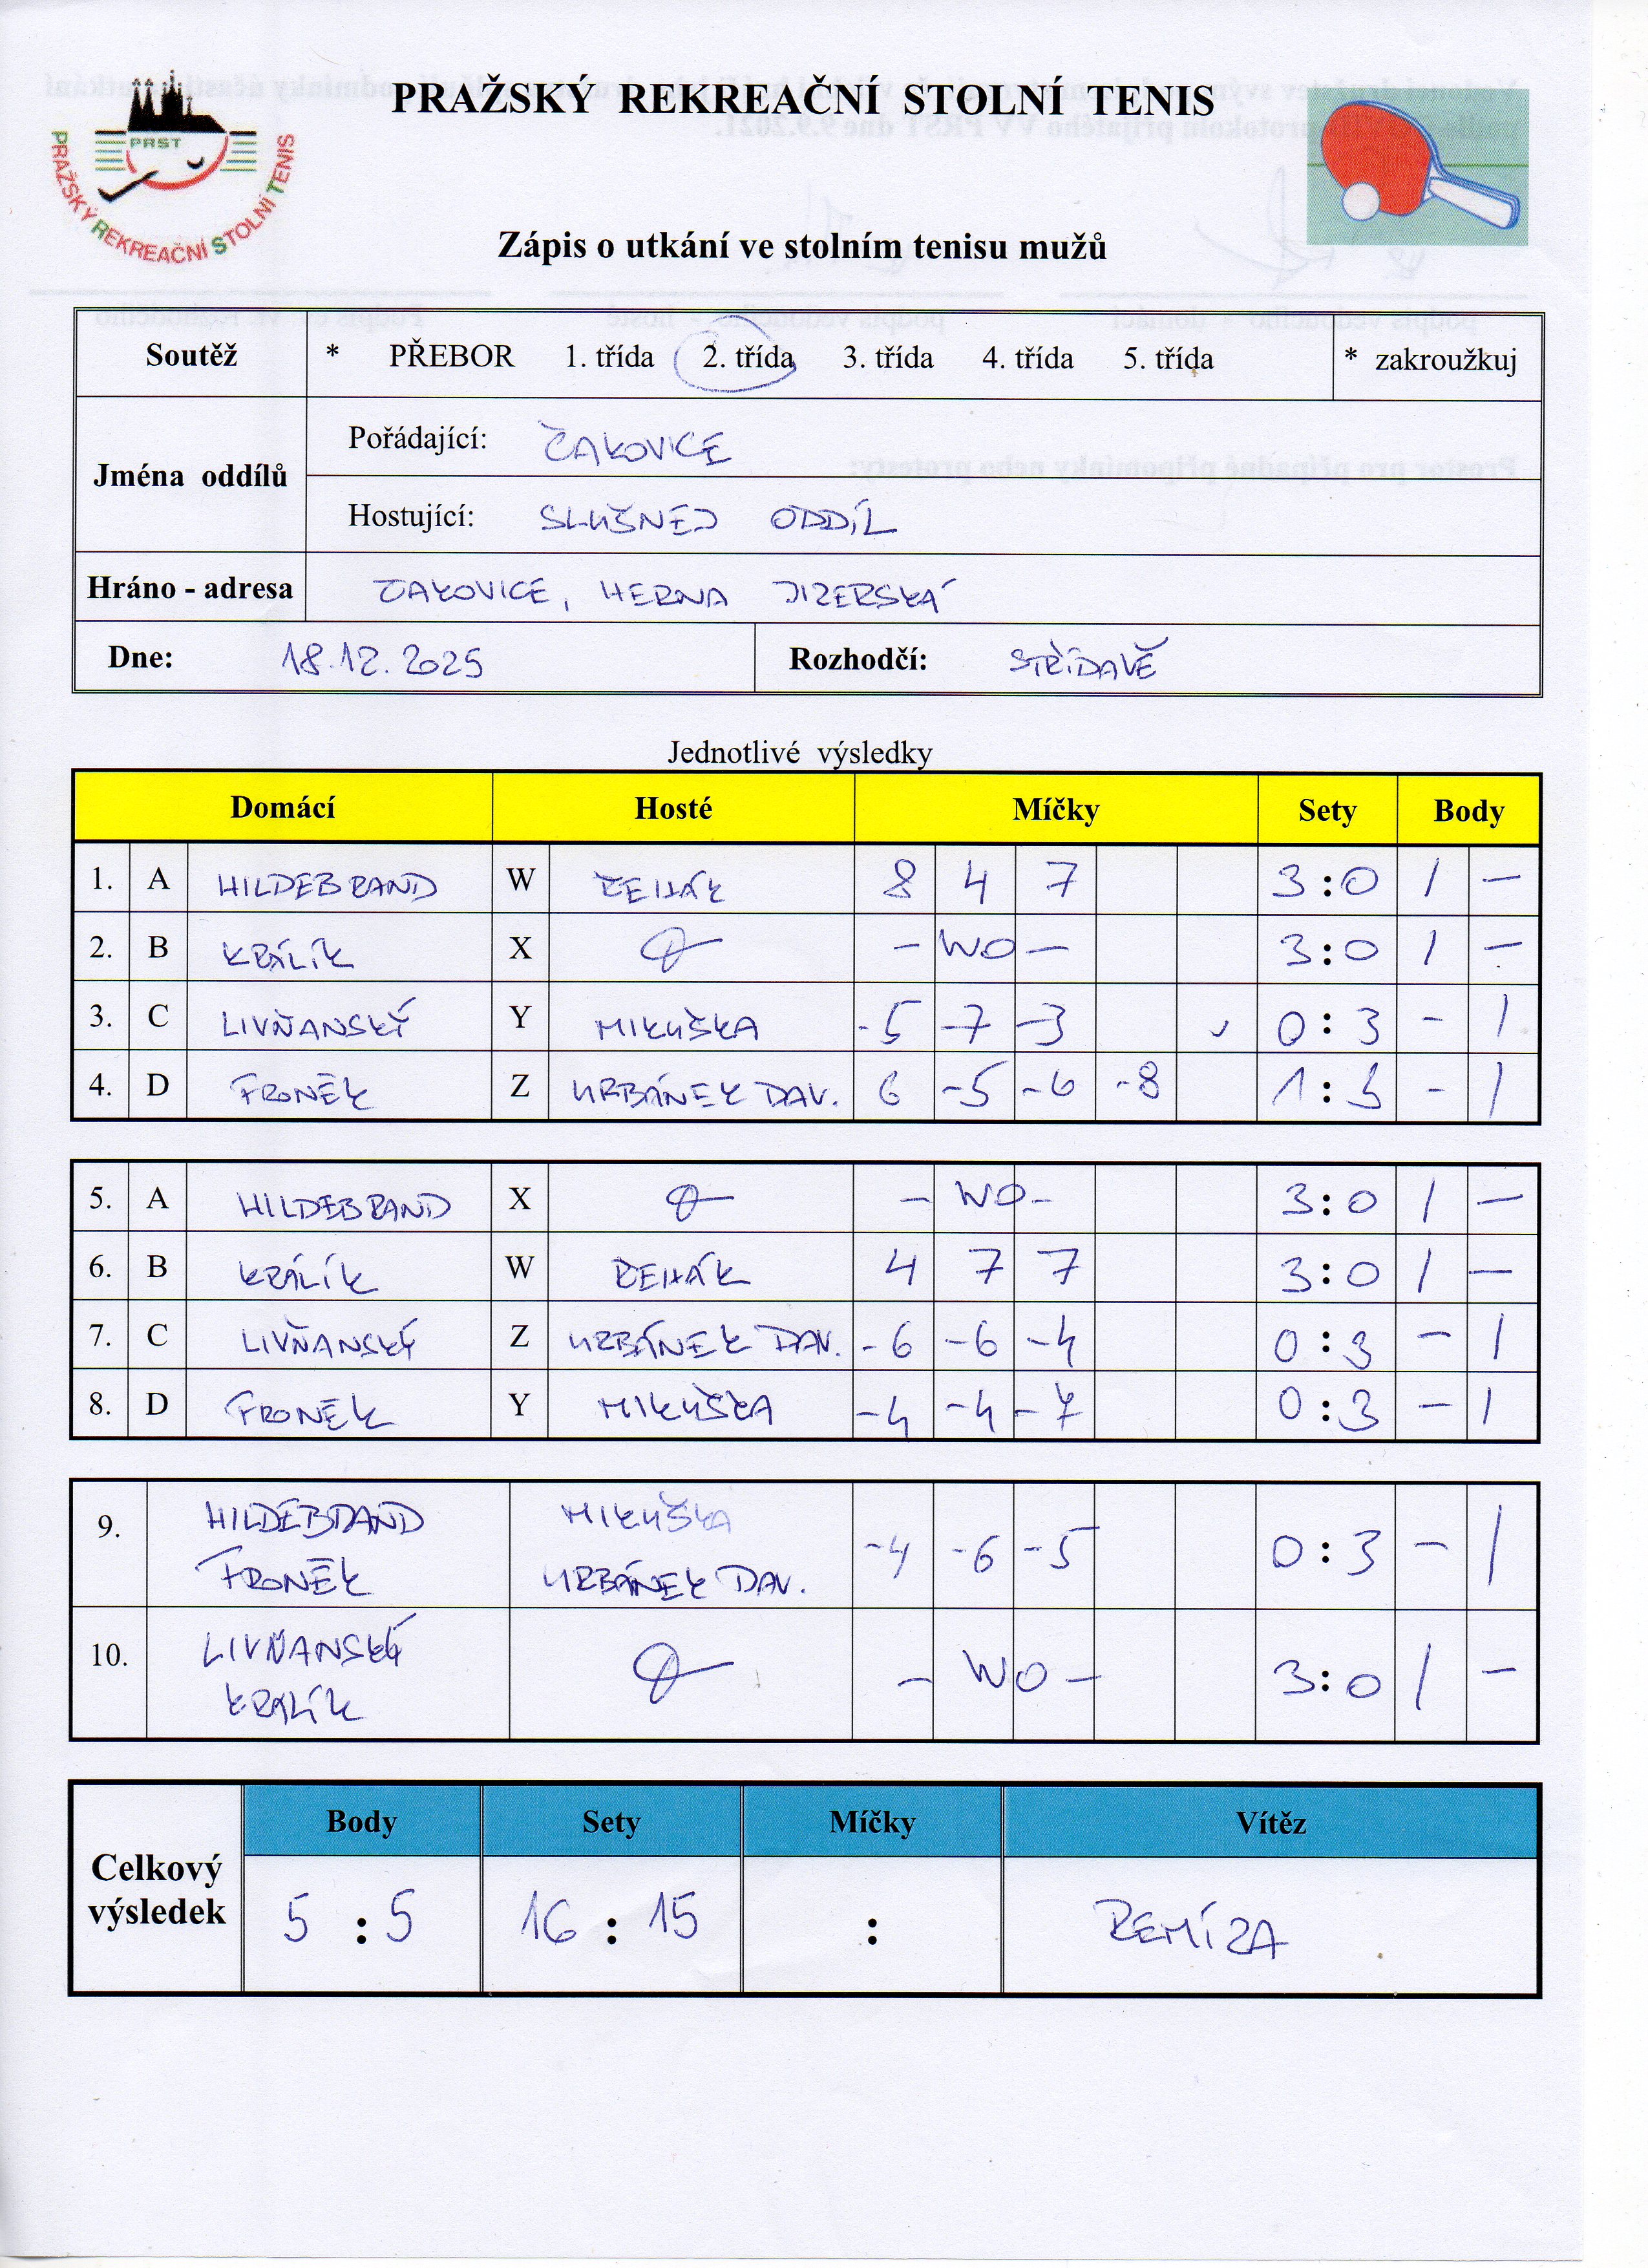 PRAŽSKÝ REKREAČNÍ STOLNÍ TENIS
PRST
PRAŽSKÝ REKREAČNÍ STOLNÍ TENIS
Zápis o utkání ve stolním tenisu mužů
Soutěž * PŘEBOR 1. třída 2. třída 3. třída 4. třída 5. třída * zakroužkuj
Jména oddílů
Pořádající: ČAKOVICE
Hostující: SLUŠNEJ ODDÍL
Hráno - adresa ČAKOVICE, HERNA JIZERSKÁ
Dne: 18.12.2025 Rozhodčí: STŘÍDAVĚ
Jednotlivé výsledky
Domácí Hosté Míčky Sety Body
1. A HILDEBRAND W ŘEHÁK 8 4 7 3:0 1 -
2. B KRÁLÍK X - WO - 3:0 1 -
3. C LIVŇANSKÝ Y MIKUŠKA -5 -7 -3 0:3 - 1
4. D FRONĚK Z URBÁNEK DAV. 6 -5 -6 -8 1:3 - 1
5. A HILDEBRAND X - WO - 3:0 1 -
6. B KRÁLÍK W ŘEHÁK 4 7 7 3:0 1 -
7. C LIVŇANSKÝ Z URBÁNEK DAV. -6 -6 -4 0:3 - 1
8. D FRONĚK Y MIKUŠKA -4 -4 -7 0:3 - 1
9. HILDEBRAND MIKUŠKA -4 -6 -5 0:3 - 1
FRONĚK URBÁNEK DAV.
10. LIVŇANSKÝ - WO - 3:0 1 -
KRÁLÍK
Celkový výsledek
Body Sety Míčky Vítěz
5 : 5 16 : 15 : REMÍZA